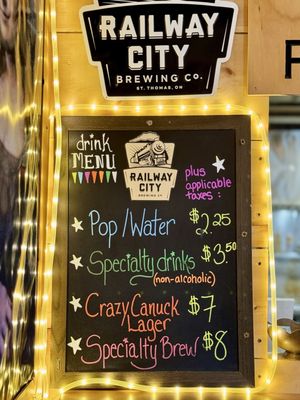 RAILWAY
CITY
BREWING CO.
ST. THOMAS, ON
drink
MENU
RAILWAY
CITY
BREWING CO.
plus
applicable
taxes:
Pop/Water $2.25
Specialty drinks $3.50
(non-alcoholic)
Crazy Canuck $7
/Lager
Specialty Brew $8